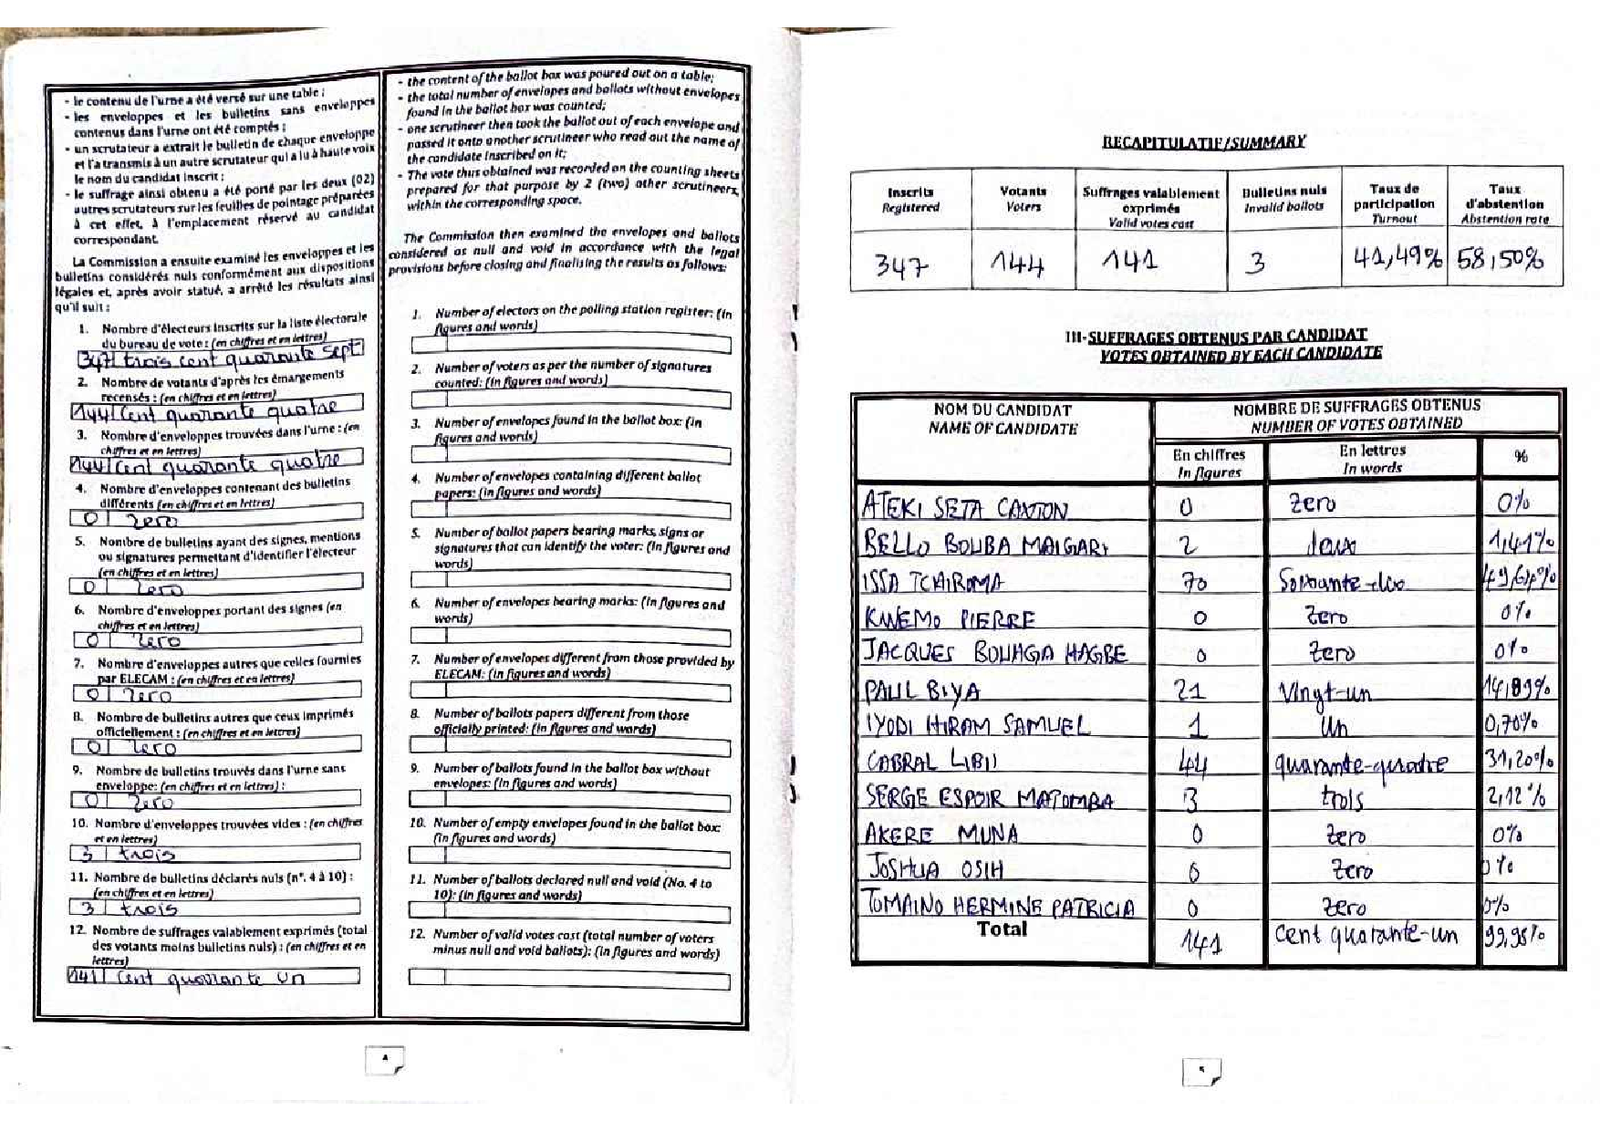 - le contenu de l'urne a été versé sur une table ;
- les enveloppes et les bulletins sans enveloppes
contenus dans l'urne ont été comptés ;
- un scrutateur a extrait le bulletin de chaque enveloppe
et l'a transmis à un autre scrutateur qui a lu à haute voix
le nom du candidat inscrit ;
- le suffrage ainsi obtenu a été porté par les deux (02)
autres scrutateurs sur les feuilles de pointage préparées
à cet effet, à l'emplacement réservé au candidat
correspondant.
La Commission a ensuite examiné les enveloppes et les
bulletins considérés nuls conformément aux dispositions
légales et, après avoir statué, a arrêté les résultats ainsi
qu'il suit :
1. Nombre d'électeurs inscrits sur la liste électorale
du bureau de vote : (en chiffres et en lettres)
347 trois cent quarante sept
2. Nombre de votants d'après les émargements
recensés : (en chiffres et en lettres)
144 Cent quarante quatre
3. Nombre d'enveloppes trouvées dans l'urne : (en
chiffres et en lettres)
144 Cent quarante quatre
4. Nombre d'enveloppes contenant des bulletins
différents (en chiffres et en lettres)
0 zero
5. Nombre de bulletins ayant des signes, mentions
ou signatures permettant d'identifier l'électeur
(en chiffres et en lettres)
0 zero
6. Nombre d'enveloppes portant des signes (en
chiffres et en lettres)
0 zero
7. Nombre d'enveloppes autres que celles fournies
par ELECAM : (en chiffres et en lettres)
0 zero
8. Nombre de bulletins autres que ceux imprimés
officiellement : (en chiffres et en lettres)
0 zero
9. Nombre de bulletins trouvés dans l'urne sans
enveloppe: (en chiffres et en lettres) :
0 zero
10. Nombre d'enveloppes trouvées vides : (en chiffres
et en lettres)
3 trois
11. Nombre de bulletins déclarés nuls (n°. 4 à 10) :
(en chiffres et en lettres)
3 trois
12. Nombre de suffrages valablement exprimés (total
des votants moins bulletins nuls) : (en chiffres et en
lettres)
141 Cent quarante un
- the content of the ballot box was poured out on a table;
- the total number of envelopes and ballots without envelopes
found in the ballot box was counted;
- one scrutineer then took the ballot out of each envelope and
passed it onto another scrutineer who read out the name of
the candidate inscribed on it;
- The vote thus obtained was recorded on the counting sheets
prepared for that purpose by 2 (two) other scrutineers,
within the corresponding space.
The Commission then examined the envelopes and ballots
considered as null and void in accordance with the legal
provisions before closing and finalising the results as follows:
1. Number of electors on the polling station register: (in
figures and words)
2. Number of voters as per the number of signatures
counted: (in figures and words)
3. Number of envelopes found in the ballot box: (in
figures and words)
4. Number of envelopes containing different ballot
papers: (in figures and words)
5. Number of ballot papers bearing marks, signs or
signatures that can identify the voter: (in figures and
words)
6. Number of envelopes bearing marks: (in figures and
words)
7. Number of envelopes different from those provided by
ELECAM: (in figures and words)
8. Number of ballots papers different from those
officially printed: (in figures and words)
9. Number of ballots found in the ballot box without
envelopes: (in figures and words)
10. Number of empty envelopes found in the ballot box:
(in figures and words)
11. Number of ballots declared null and void (No. 4 to
10): (in figures and words)
12. Number of valid votes cast (total number of voters
minus null and void ballots): (in figures and words)
4
RECAPITULATIF/SUMMARY
Inscrits Registered | Votants Voters | Suffrages valablement exprimés Valid votes cast | Bulletins nuls Invalid ballots | Taux de participation Turnout | Taux d'abstention Abstention rate
347 144 141 3 41,49% 58,50%
III-SUFFRAGES OBTENUS PAR CANDIDAT
VOTES OBTAINED BY EACH CANDIDATE
NOM DU CANDIDAT NOMBRE DE SUFFRAGES OBTENUS
NAME OF CANDIDATE NUMBER OF VOTES OBTAINED
En chiffres En lettres %
In figures In words
ATEKI SETA CAXTON 0 zero 0%
BELLO BOUBA MAIGARI 2 deux 1,41%
ISSA TCHIROMA 70 49,64%
KWEMO PIERRE 0 zero 0%
JACQUES BOUHGA HAGBE 0 zero 0%
PAUL BIYA 21 Vingt-un 14,89%
IYODI HIRAM SAMUEL 1 un 0,70%
CABRAL LIBII 44 quarante-quatre 31,20%
SERGE ESPOIR MATOMBA 3 trois 2,12%
AKERE MUNA 0 zero 0%
JOSHUA OSIH 0 zero 0%
TOMAINO HERMINE PATRICIA 0 zero 0%
Total 141 cent quarante-un 99,98%
5